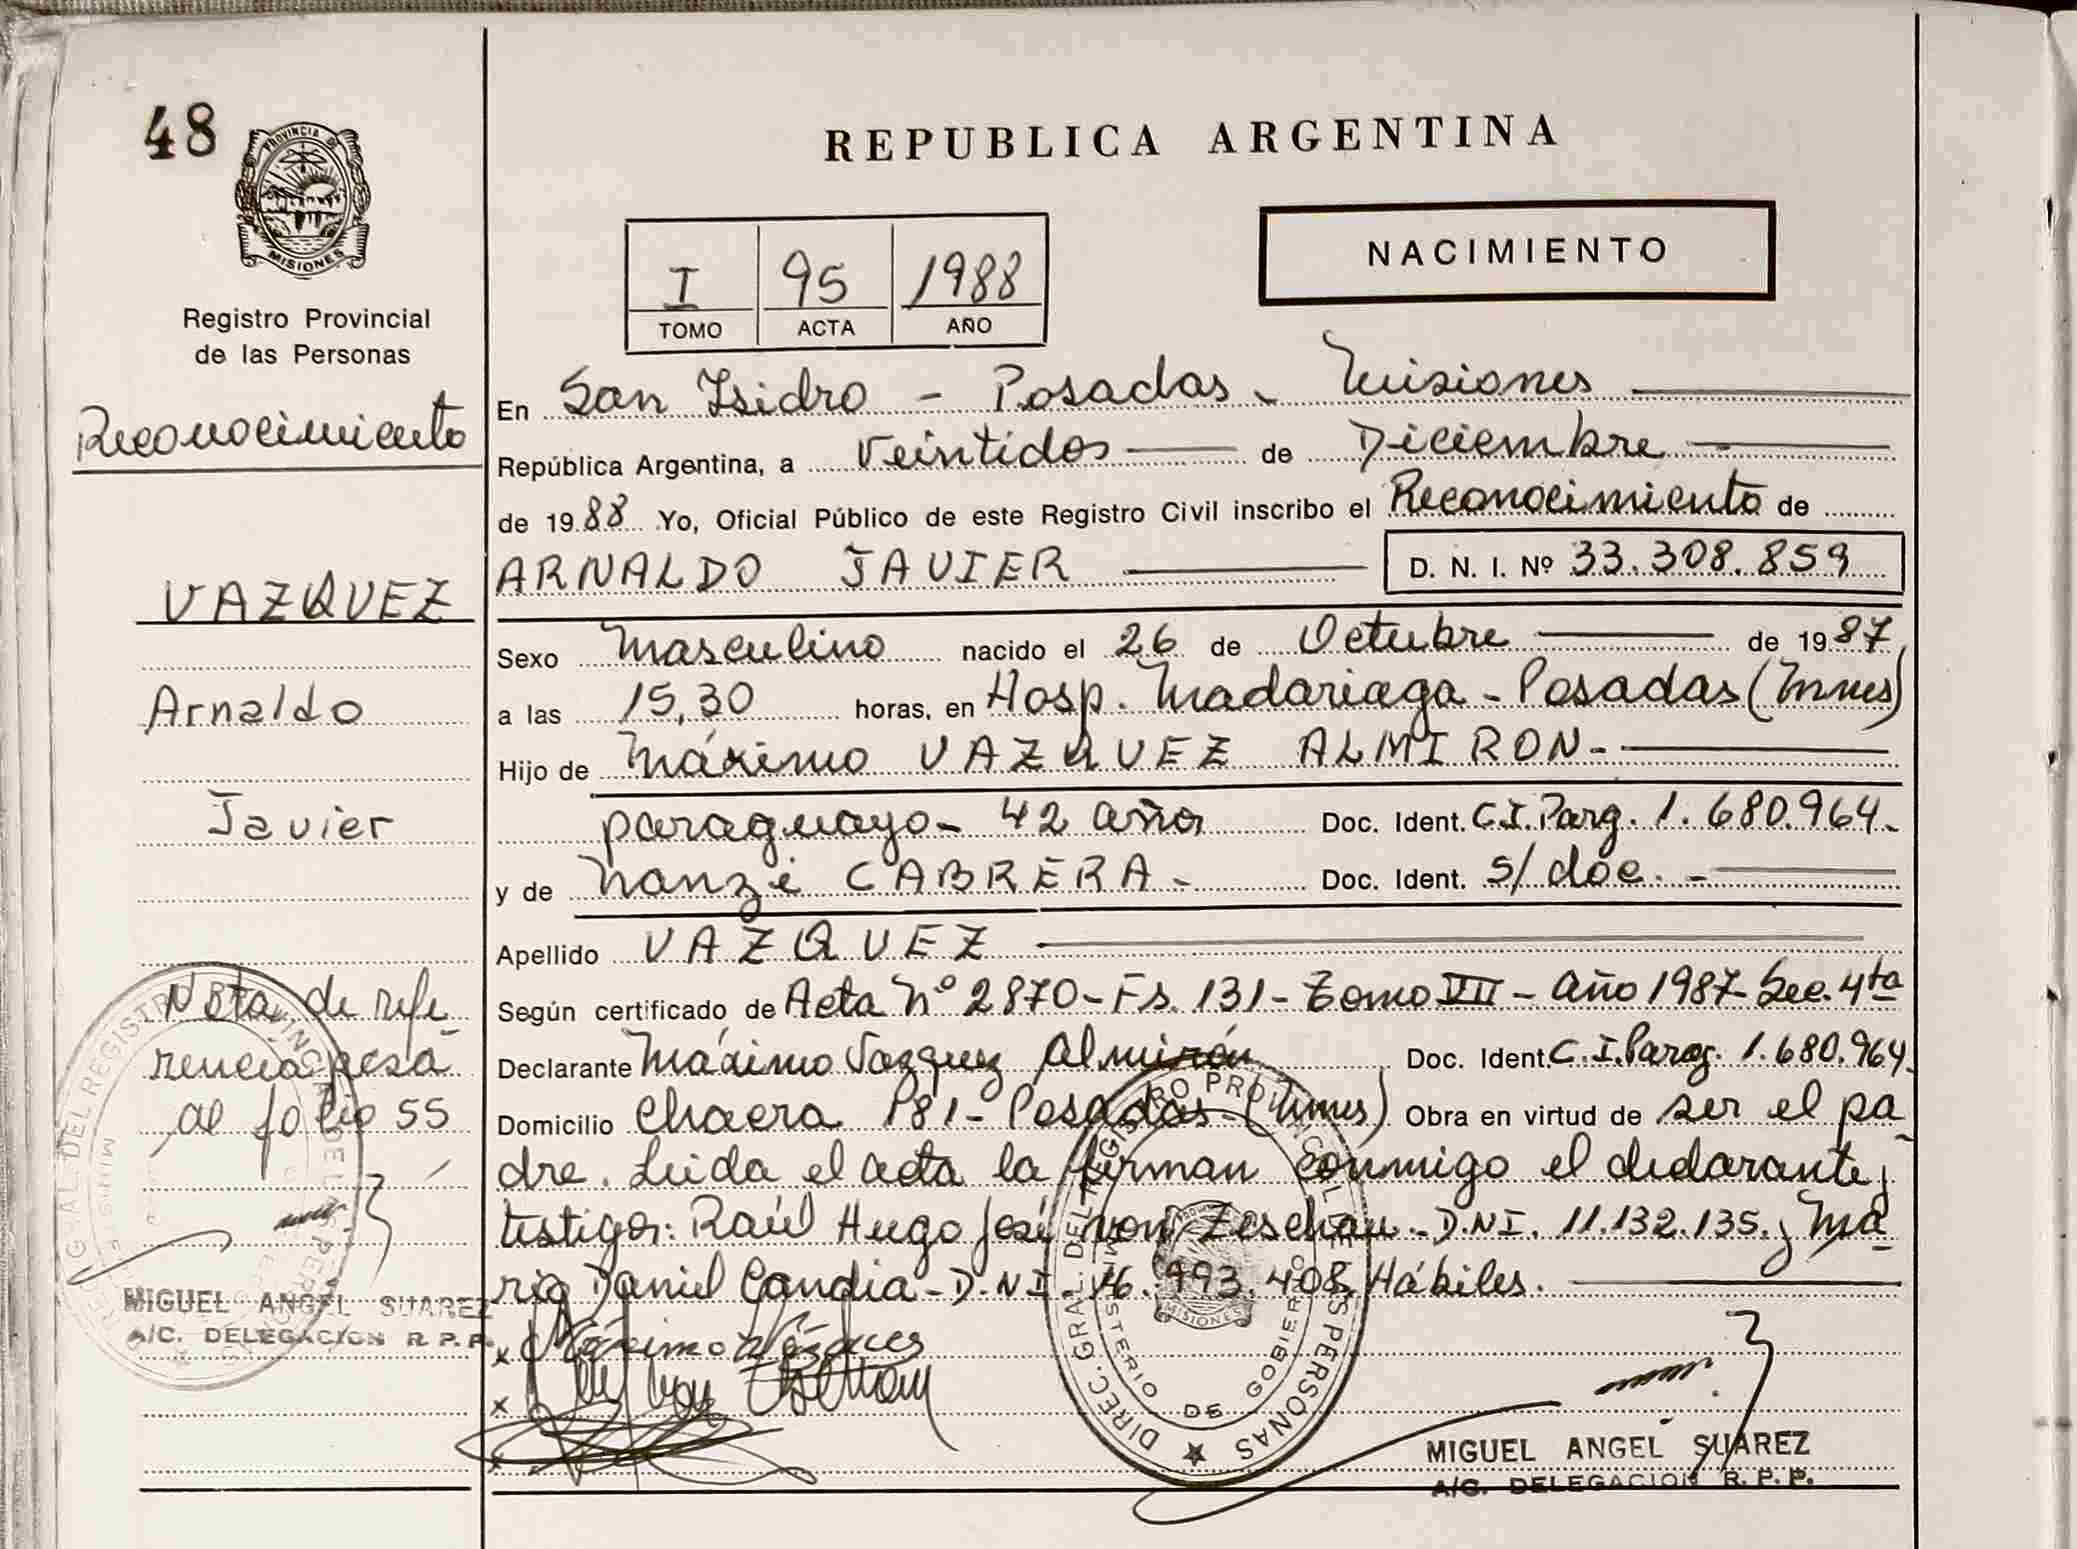 48
PROVINCIA DE
MISIONES
Registro Provincial
de las Personas
Reconocimiento
VAZQUEZ
Arnaldo
Javier
Nota de refe
rencia pesa
al folio 55
MIGUEL ANGEL SUAREZ
A/C. DELEGACION R. P. P.
REPUBLICA ARGENTINA
NACIMIENTO
I 95 1988
TOMO ACTA AÑO
En San Isidro - Posadas - Misiones
República Argentina, a Veintidos de Diciembre
de 1988 Yo, Oficial Público de este Registro Civil inscribo el Reconocimiento de
ARNALDO JAVIER D. N. I. Nº 33.308.859
Sexo Masculino nacido el 26 de Octubre de 1987
a las 15,30 horas, en Hosp. Madariaga - Posadas (Mnes)
Hijo de Máximo VAZQUEZ ALMIRON-
paraguayo- 42 años Doc. Ident. C.I. Parg. 1.680.964-
y de Nanzi CABRERA - Doc. Ident. s/doc. -
Apellido VAZQUEZ
Según certificado de Acta Nº 2870-Fs. 131- Tomo VII - Año 1987 Sec. 4ta
Declarante Máximo Vazquez Almirón Doc. Ident. C.I. Parag. 1.680.964.
Domicilio Chacra 181- Posadas-(Mnes) Obra en virtud de ser el pa
dre. Leida el acta la firman conmigo el declarante y
testigos: Raúl Hugo José von Zeschau - D.N.I. 11.132.135. y Ma
rio Daniel Candia - D.N.I. 16.993.408 Hábiles.
x Máximo Vázques
x
x
DIREC. GRAL. DEL REGISTRO PROVINCIAL DE LAS PERSONAS
MINISTERIO DE GOBIERNO
MISIONES
MIGUEL ANGEL SUAREZ
A/C. DELEGACION R. P. P.